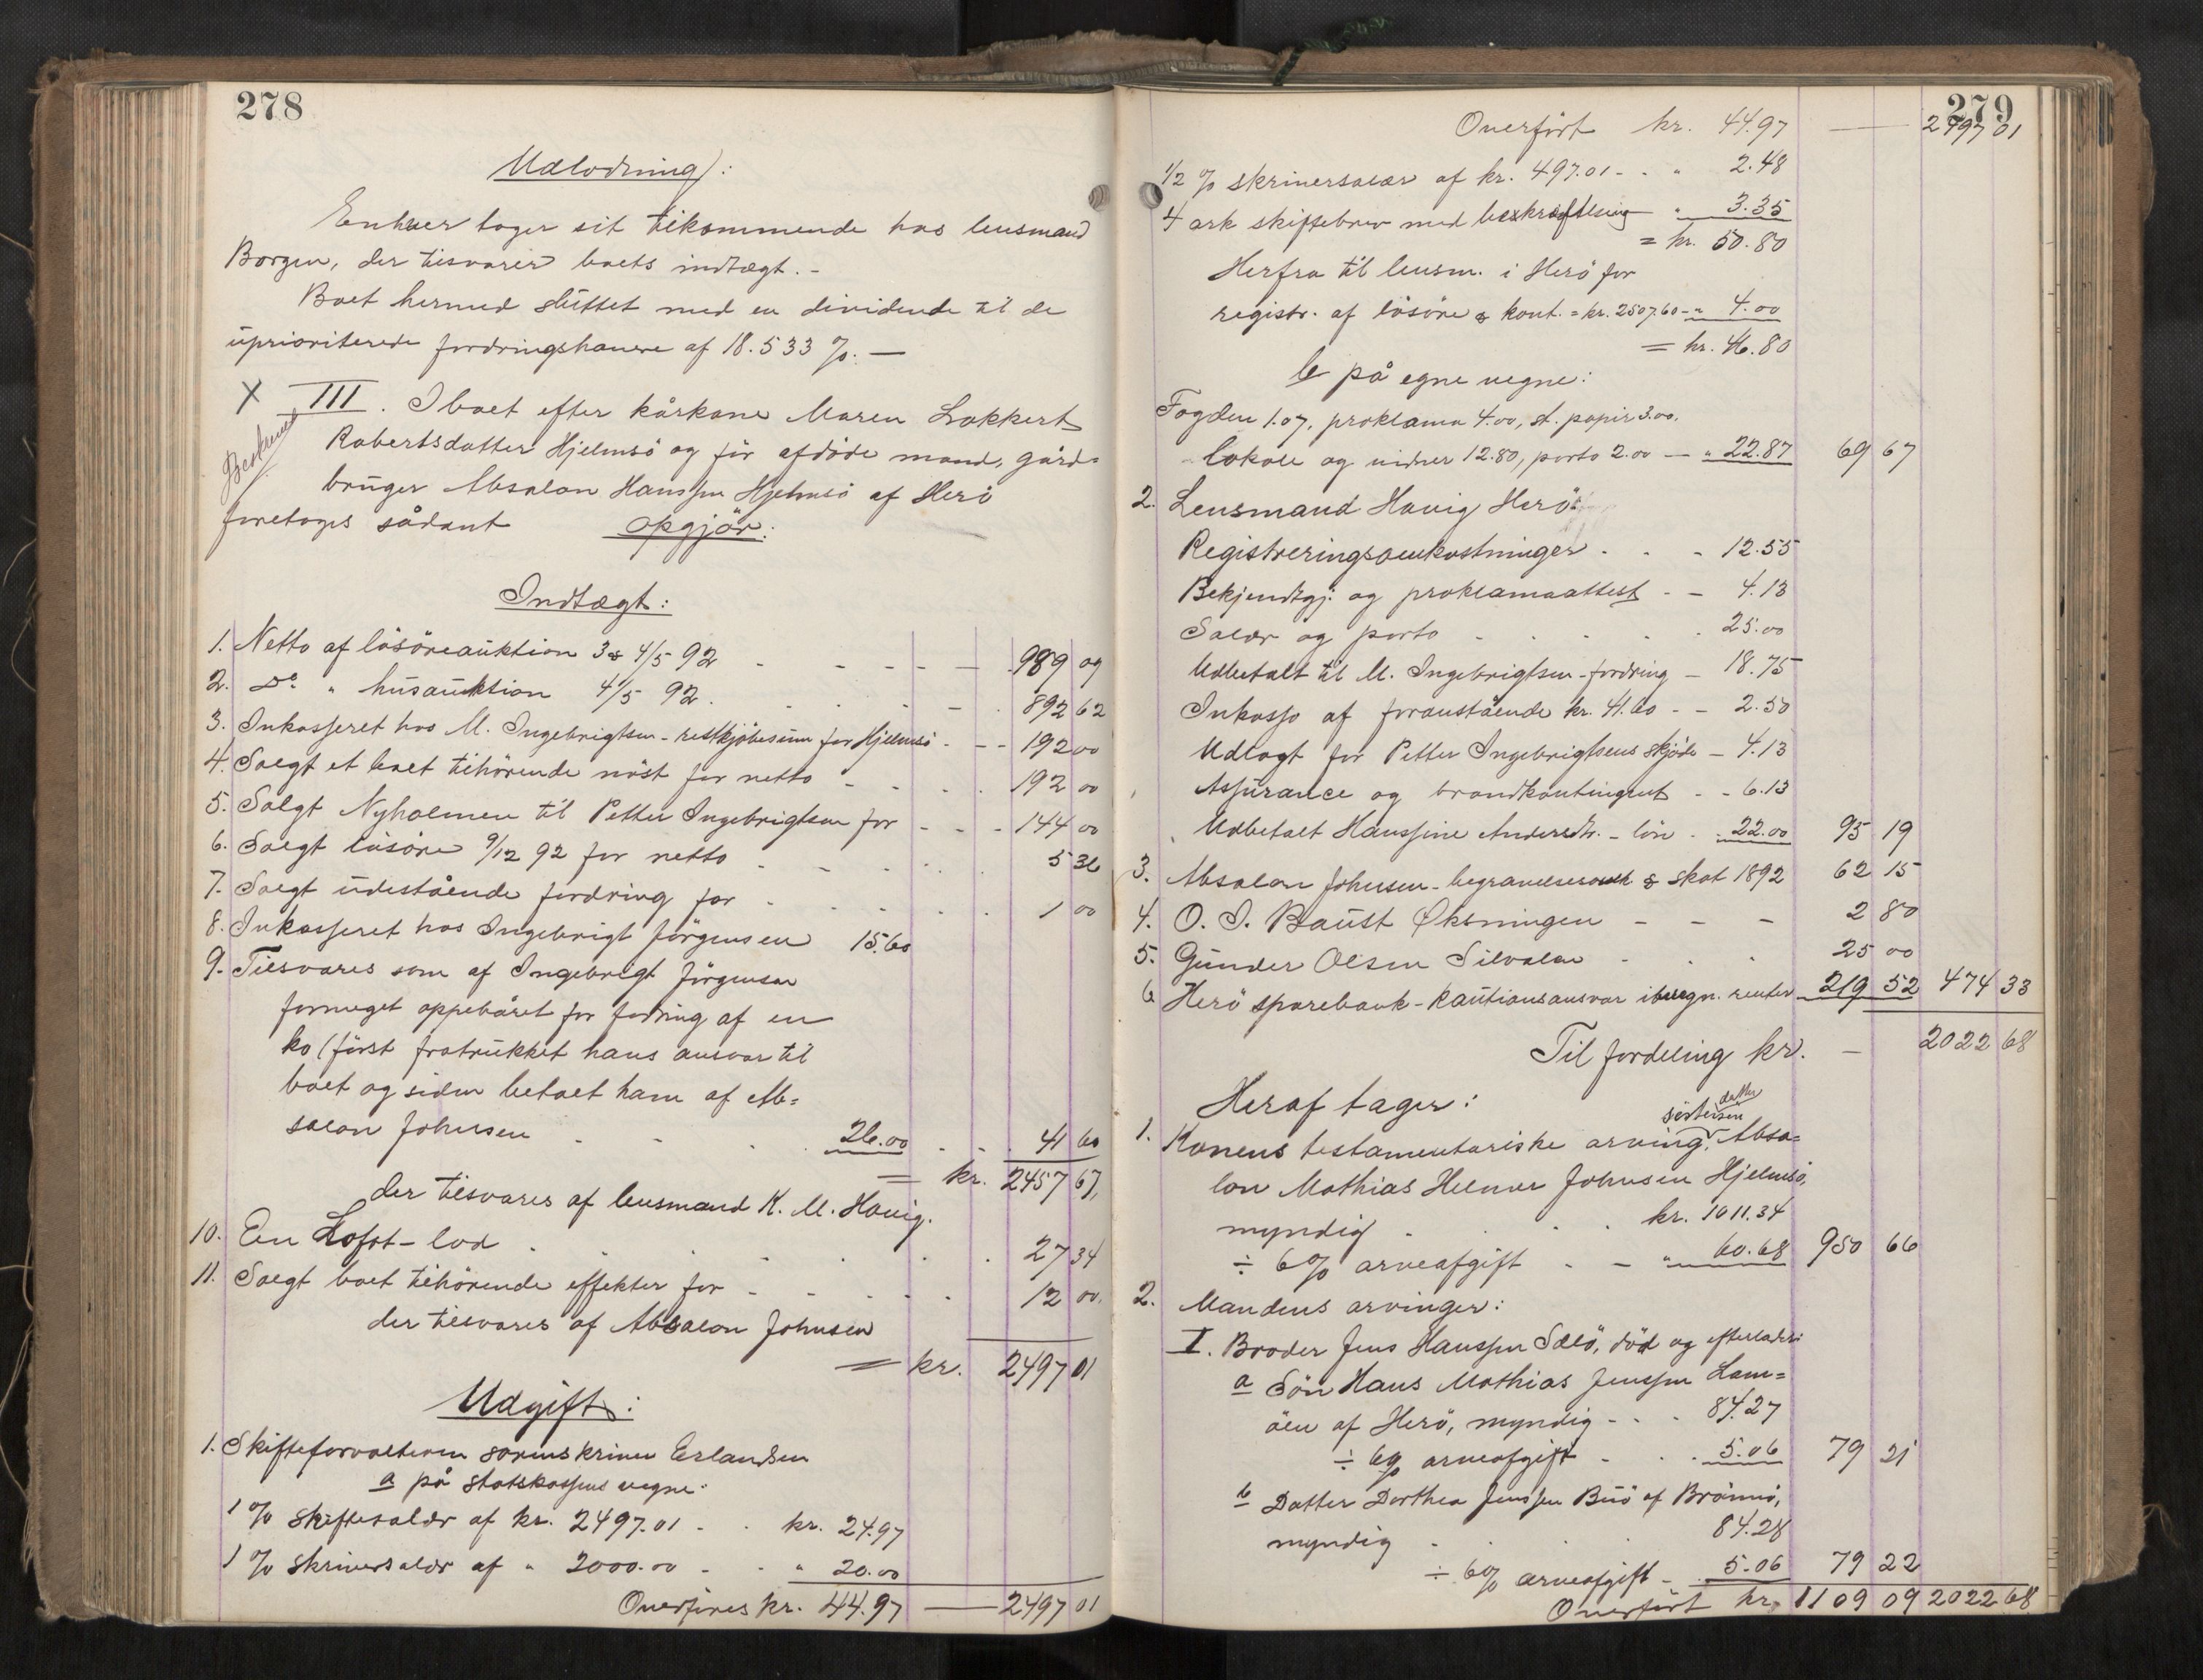 278
Udlodning:
Enhver tager sit tilkommende hos lensmand
Borgen, der tilsvarer boets indtægt. -
Boet hermed sluttet med en dividende til de
uprioriterede fordringshavere af 18.533 %. —
X III. I boet efter kårkone Maren Lokkert
Beskrevet
Robertsdatter Hjelmsö og før afdöde mand, gård=
bruger Absalon Hanssen Hjelmsö af Herö
foretages sådant opgjör:
Indtægt:
1. Netto af lösöreauktion 3 & 4/5 92 - - - - 989 09
2. Do " husauktion 4/5 92. - - - 892 62
3. Inkasseret hos M. Ingebrigtsen - restkjöbesum for Hjelmsö - - - 192 00
4. Solgt et boet tilhörende nöst for netto - - - 192 00
5. Solgt Nyholmen til Petter Ingebrigtsen for - - - 144 00
6. Solgt lösöre 9/12 92 for netto - - - 5 36
7. Solgt udestående fordring for - - - 1 00
8. Inkasseret hos Ingebrigt Jörgensen 15.60
9. Tilsvares som af Ingebrigt Jörgensen
formeget oppebåret for fodring af en
ko (först fratrukket hans ansvar til
boet og siden betalt ham af Ab=
salon Johnsen - - - 26.00 - - 41 60
= kr. 2457 67,
der tilsvares af lensmand K. M. Havig.
10. En Lofot-lod - - - 27 34
11. Solgt boet tilhörende effekter for - - - 12 00.
der tilsvares af Absalon Johnsen
= kr. 2497 01
Udgift:
1. Skifteforvalteren sorenskriver Erlandsen
a på statskassens vegne:
1 % skiftesalær af kr. 2497.01 - - kr. 24.97
1 % skriversalær af " 2000.00 - - " 20.00
Overföres kr. 44.97 — 2497 01
279
Overfört kr. 44.97 — 2497 01
1/2 % skriversalær af kr. 497.01 - - " 2.48
4 ark skiftebrev med bekræftelse " 3.35
= kr. 50.80
Herfra til lensm. i Herö for
registr. af lösöre & kont. = kr. 2507.60 - " 4.00
= kr. 46.80
b på egne vegne:
Fogden 1.07, proklama 4.00, st. papir 3.00.
lokale og vidner 12.80, porto 2.00 — " 22.87 69 67
2. Lensmand Havig Herö:
Registreringsomkostninger - - - 12.55
Bekjendtgj. og proklamaattest - - 4.13
Salær og porto - - - 25.00
Udbetalt til M. Ingebrigtsen - fordring - 18.75
Inkasso af foranstående kr. 41.60 - - 2.50
Udlagt for Petter Ingebrigtsens skjöde - 4.13
Assurance og brandkontingent - - 6.13
Udbetalt Hanssine Andersdtr. - lön - 22.00 95 19
3. Absalon Johnsen - begravelsesomk. & skat 1892 62 15
4. O. I. Baust Øksningen - - - 2 80
5. Gunder Olsen Silvalen - - - 25 00
6 Herö sparebank - kautionsansvar iberegn. renter 219 52 474 33
Til fordeling kr. — 2022 68
Heraf tager:
datter
söstersön
1. Konens testamentariske arving, Absa=
lon Mathias Helmer Johnsen Hjelmsö,
myndig - - - kr. 1011.34
÷ 6% arveafgift - - " 60.68 950 66
2. Mandens arvinger:
I. Broder Jens Hanssen Sælö, död og efterladt:
a Sön Hans Mathias Jenssen Lam=
öen af Herö, myndig - - - 84.27
÷ 6% arveafgift - - - 5.06 79 21
b Datter Dorthea Jenssen Buö af Brönnö,
myndig - - - 84.28
÷ 6% arveafgift - - 5.06 79 22
Overfört kr. 1109 09 2022 68